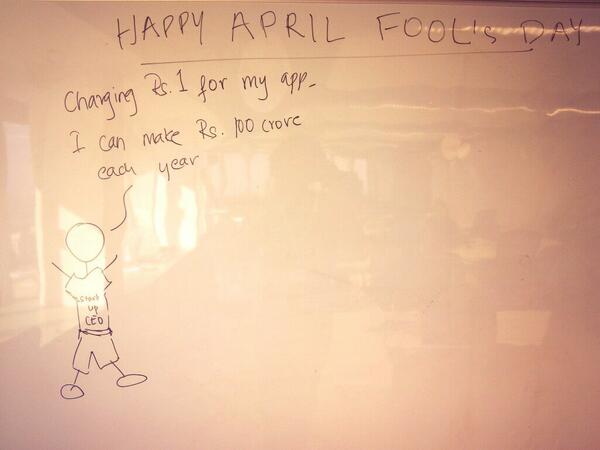 HAPPY APRIL FOOL's DAY
Charging Rs.1 for my app_
I can make Rs. 100 crore
each year
start
up
CEO